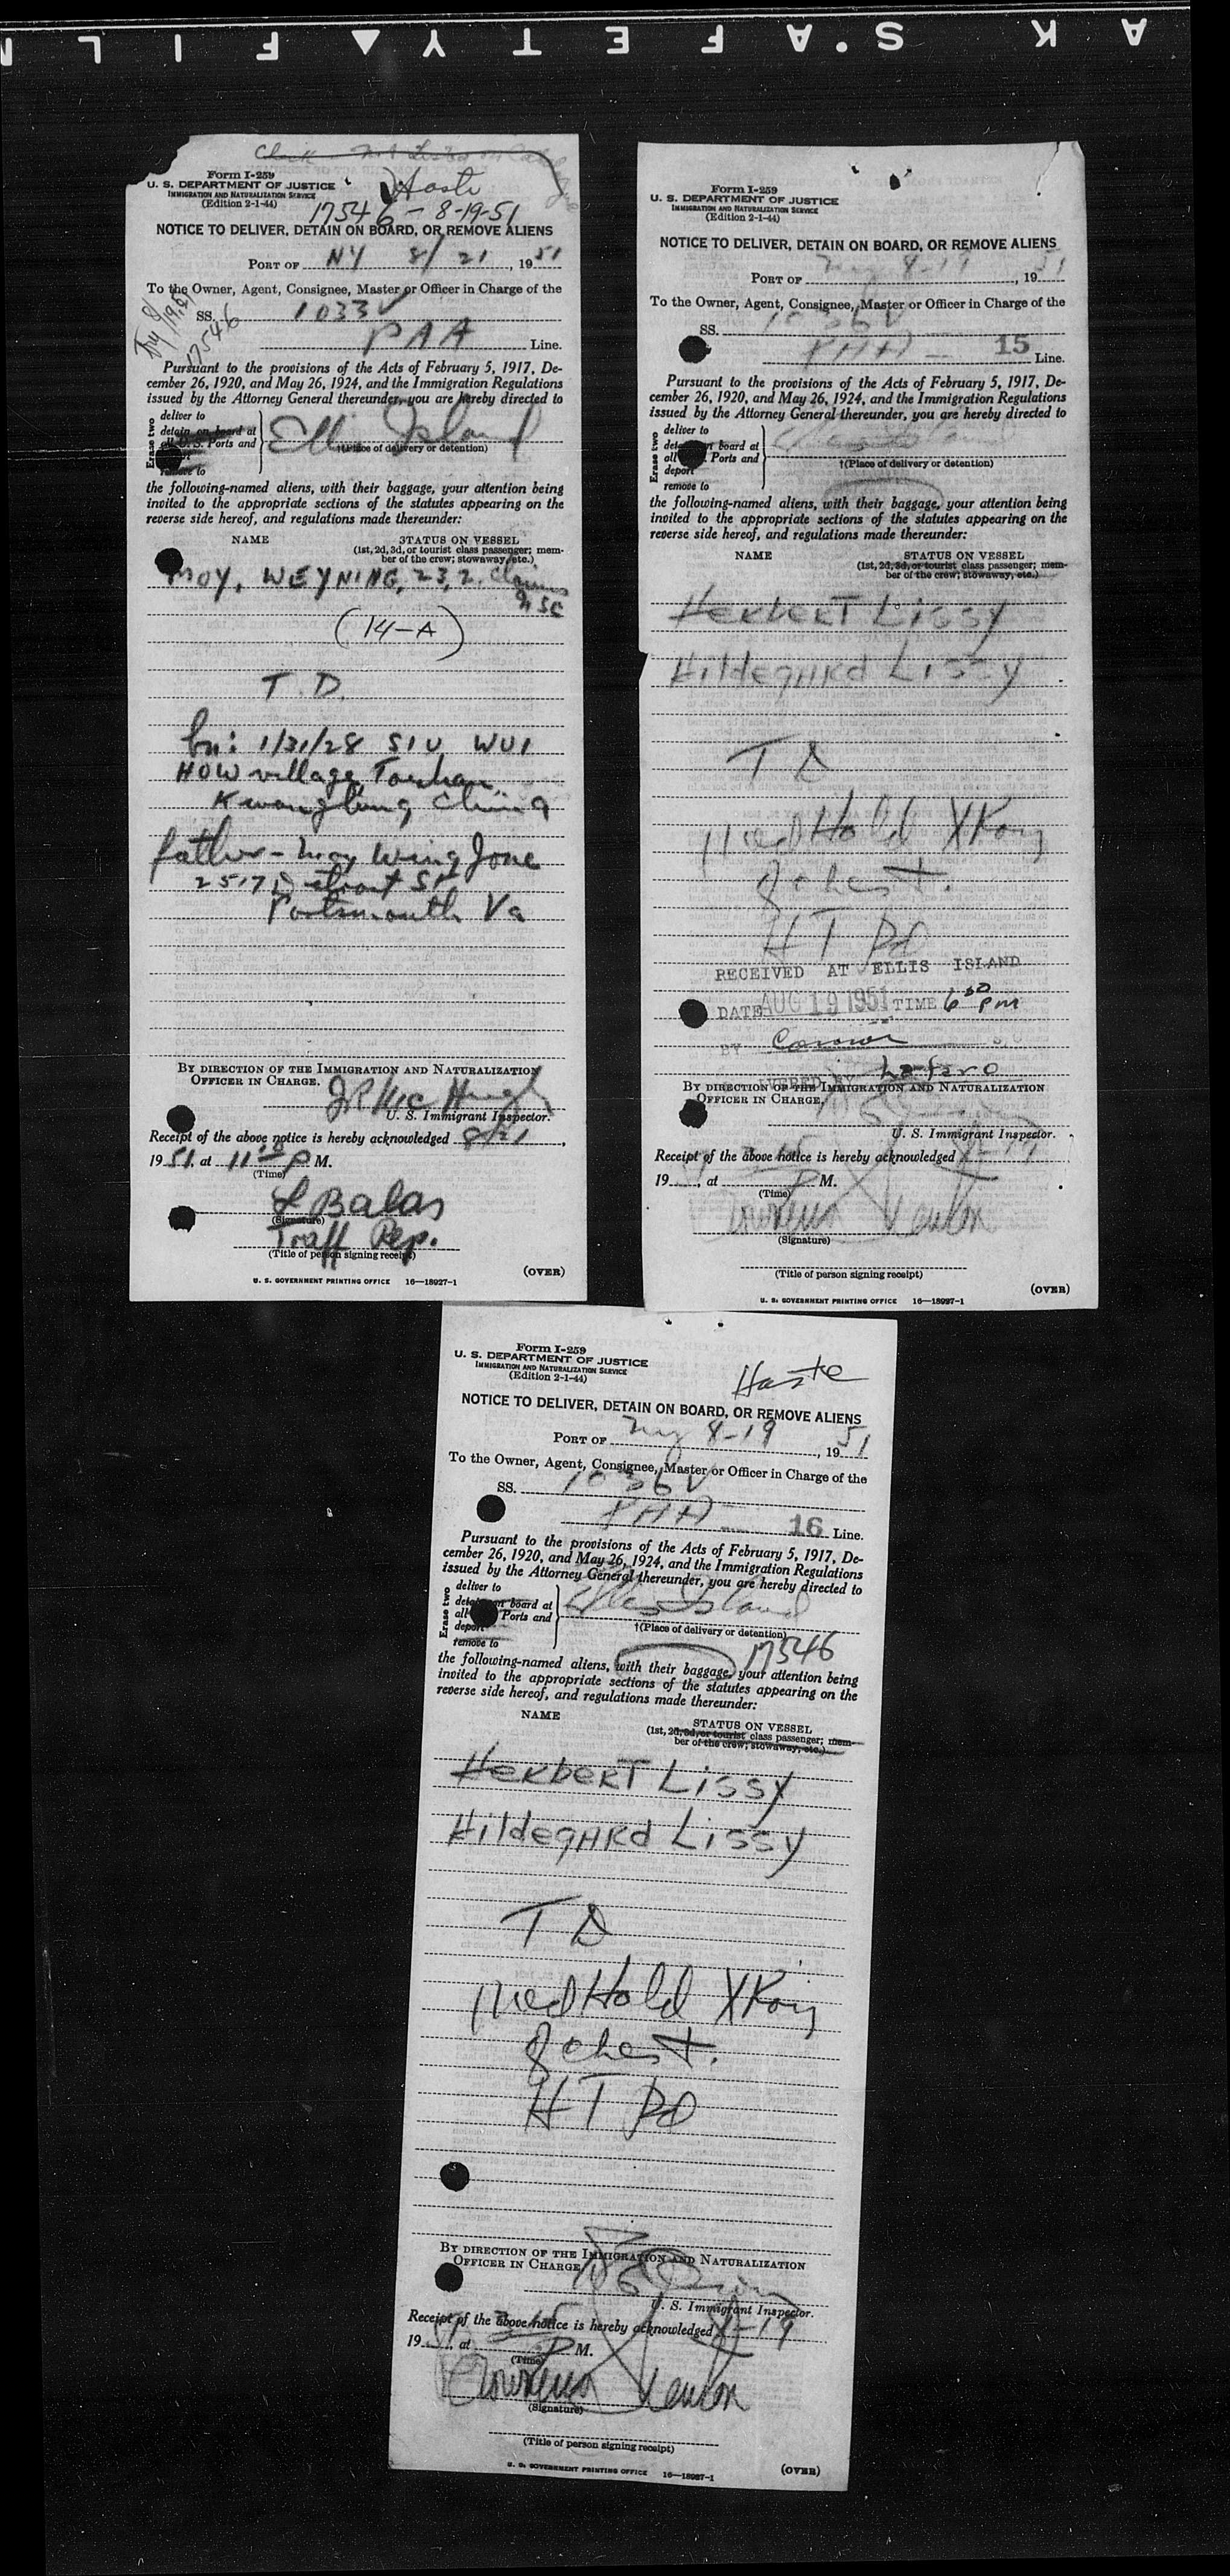 SAFETY FILM
Haste
Form I-259
U. S. DEPARTMENT OF JUSTICE
IMMIGRATION AND NATURALIZATION SERVICE
(Edition 2-1-44)
17546 - 8-19-51
NOTICE TO DELIVER, DETAIN ON BOARD, OR REMOVE ALIENS
PORT OF NY 8/21, 1951
To the Owner, Agent, Consignee, Master or Officer in Charge of the
SS. 1033V
PAA Line.
17546
Pursuant to the provisions of the Acts of February 5, 1917, De-
cember 26, 1920, and May 26, 1924, and the Immigration Regulations
issued by the Attorney General thereunder, you are hereby directed to
Erase two
deliver to
detain on board at
all U. S. Ports and
remove to
Ellis Island
†(Place of delivery or detention)
the following-named aliens, with their baggage, your attention being
invited to the appropriate sections of the statutes appearing on the
reverse side hereof, and regulations made thereunder:
NAME STATUS ON VESSEL
(1st, 2d, 3d, or tourist class passenger; mem-
ber of the crew; stowaway, etc.)
MOY, WEYNING, 23, 2. Claims
USC
(14-A)
T.D.
bn: 1/31/28 SIU WUI
HOW village, Toishan
Kwangtung, China
father - Moy Wing Jone
Portsmouth Va
BY DIRECTION OF THE IMMIGRATION AND NATURALIZATION
OFFICER IN CHARGE.
U. S. Immigrant Inspector.
Receipt of the above notice is hereby acknowledged 8/21,
1951, at 11 P M.
(Time)
L Balas
(Signature)
Traff Rep.
(Title of person signing receipt)
(OVER)
U. S. GOVERNMENT PRINTING OFFICE 16—18927-1
Form I-259
U. S. DEPARTMENT OF JUSTICE
IMMIGRATION AND NATURALIZATION SERVICE
(Edition 2-1-44)
NOTICE TO DELIVER, DETAIN ON BOARD, OR REMOVE ALIENS
PORT OF NY 8-19, 1951
To the Owner, Agent, Consignee, Master or Officer in Charge of the
SS. 1036V
PAA 15 Line.
Pursuant to the provisions of the Acts of February 5, 1917, De-
cember 26, 1920, and May 26, 1924, and the Immigration Regulations
issued by the Attorney General thereunder, you are hereby directed to
Erase two
deliver to
board at
all Ports and
deport
remove to
Ellis Island
†(Place of delivery or detention)
the following-named aliens, with their baggage, your attention being
invited to the appropriate sections of the statutes appearing on the
reverse side hereof, and regulations made thereunder:
NAME STATUS ON VESSEL
(1st, 2d, 3d, or tourist class passenger; mem-
ber of the crew; stowaway, etc.)
Herbert Lissy
Hildegard Lissy
T D
Med Hold XRay
of chest.
HT PD
RECEIVED AT ELLIS ISLAND
DATE AUG 19 1951 TIME 6 PM
BY
BY DIRECTION OF THE IMMIGRATION AND NATURALIZATION
OFFICER IN CHARGE.
U. S. Immigrant Inspector.
Receipt of the above notice is hereby acknowledged 8-19
19, at P M.
(Time)
(Signature)
(Title of person signing receipt)
(OVER)
U. S. GOVERNMENT PRINTING OFFICE 16—18927-1
Form I-259
U. S. DEPARTMENT OF JUSTICE
IMMIGRATION AND NATURALIZATION SERVICE
(Edition 2-1-44)
Haste
NOTICE TO DELIVER, DETAIN ON BOARD, OR REMOVE ALIENS
PORT OF NY 8-19, 1951
To the Owner, Agent, Consignee, Master or Officer in Charge of the
SS. 1036V
PAA 16 Line.
Pursuant to the provisions of the Acts of February 5, 1917, De-
cember 26, 1920, and May 26, 1924, and the Immigration Regulations
issued by the Attorney General thereunder, you are hereby directed to
Erase two
deliver to
board at
all Ports and
deport
remove to
Ellis Island
†(Place of delivery or detention)
17546
the following-named aliens, with their baggage, your attention being
invited to the appropriate sections of the statutes appearing on the
reverse side hereof, and regulations made thereunder:
NAME STATUS ON VESSEL
(1st, 2d, 3d, or tourist class passenger; mem-
ber of the crew; stowaway, etc.)
Herbert Lissy
Hildegard Lissy
T D
Med Hold XRay
of chest.
HT PD
BY DIRECTION OF THE IMMIGRATION AND NATURALIZATION
OFFICER IN CHARGE
U. S. Immigrant Inspector.
Receipt of the above notice is hereby acknowledged 8-19
19, at P M.
(Time)
(Signature)
(Title of person signing receipt)
U. S. GOVERNMENT PRINTING OFFICE 16—18927-1
(OVER)